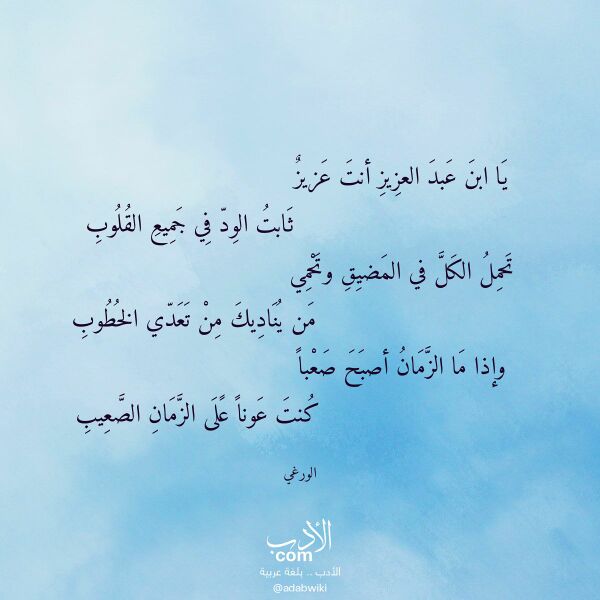 يَا ابنَ عَبدَ العزِيزِ أنتَ عَزيزٌ
ثَابتُ الوِدّ فِي جَمِيعِ القُلُوبِ
تَحمِلُ الكَلَّ في المَضيِقِ وتَحْمِي
مَن يُنَادِيكَ مِنْ تَعَدّي الخُطُوبِ
وإذا مَا الزَّمَانُ أصبَحَ صَعْباً
كُنتَ عَوناً عًلَى الزَّمَانِ الصَّعِيبِ
الورغي
الأدب
com
الأدب .. بلغة عربية
@adabwiki